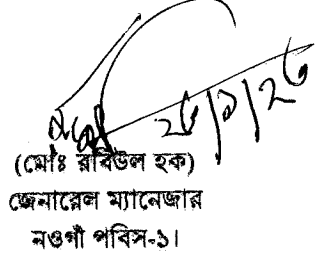 ২৬/১/২৬
(মোঃ রবিউল হক)
জেনারেল ম্যানেজার
নওগাঁ পবিস-১।